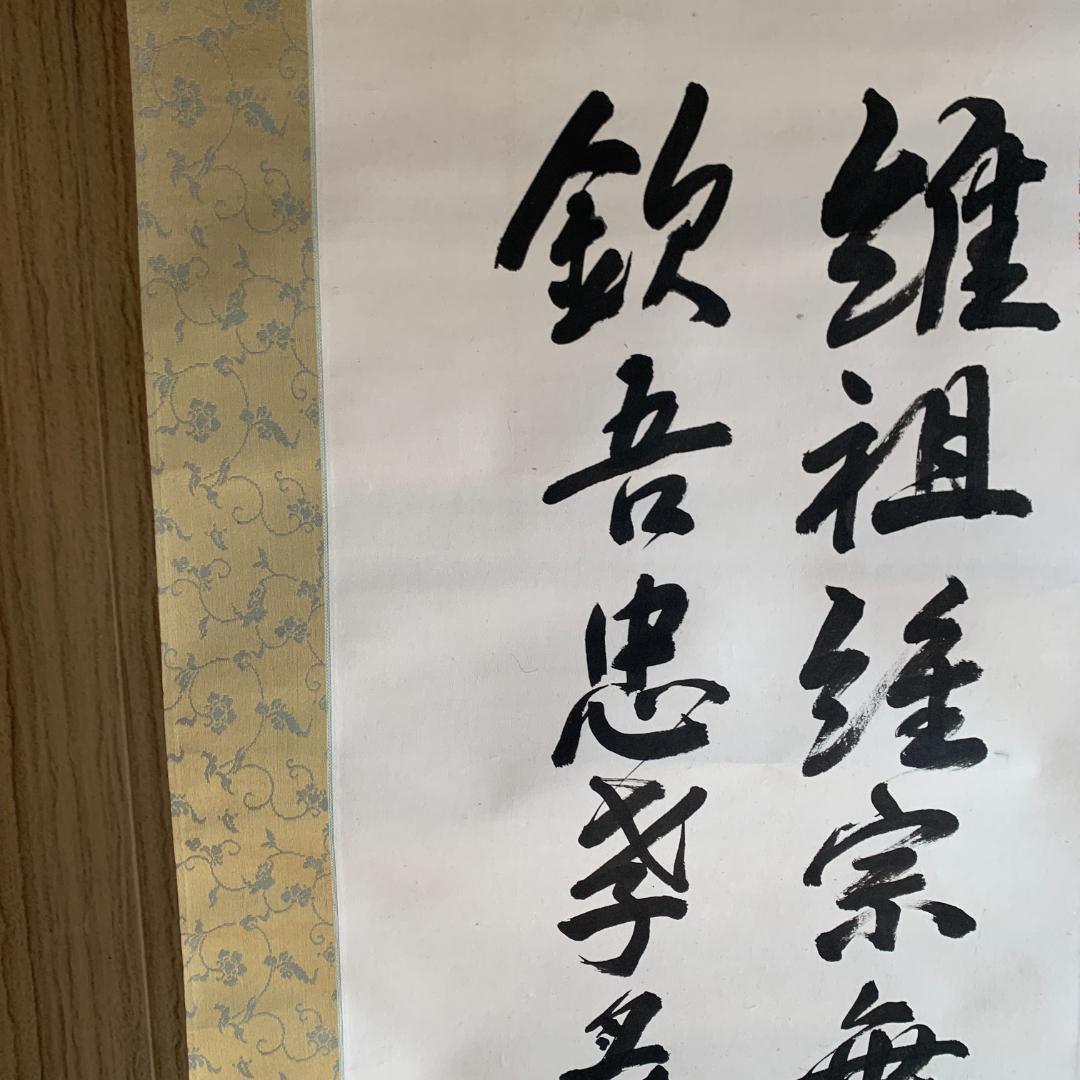 維祖維宗無
欽吾忠孝